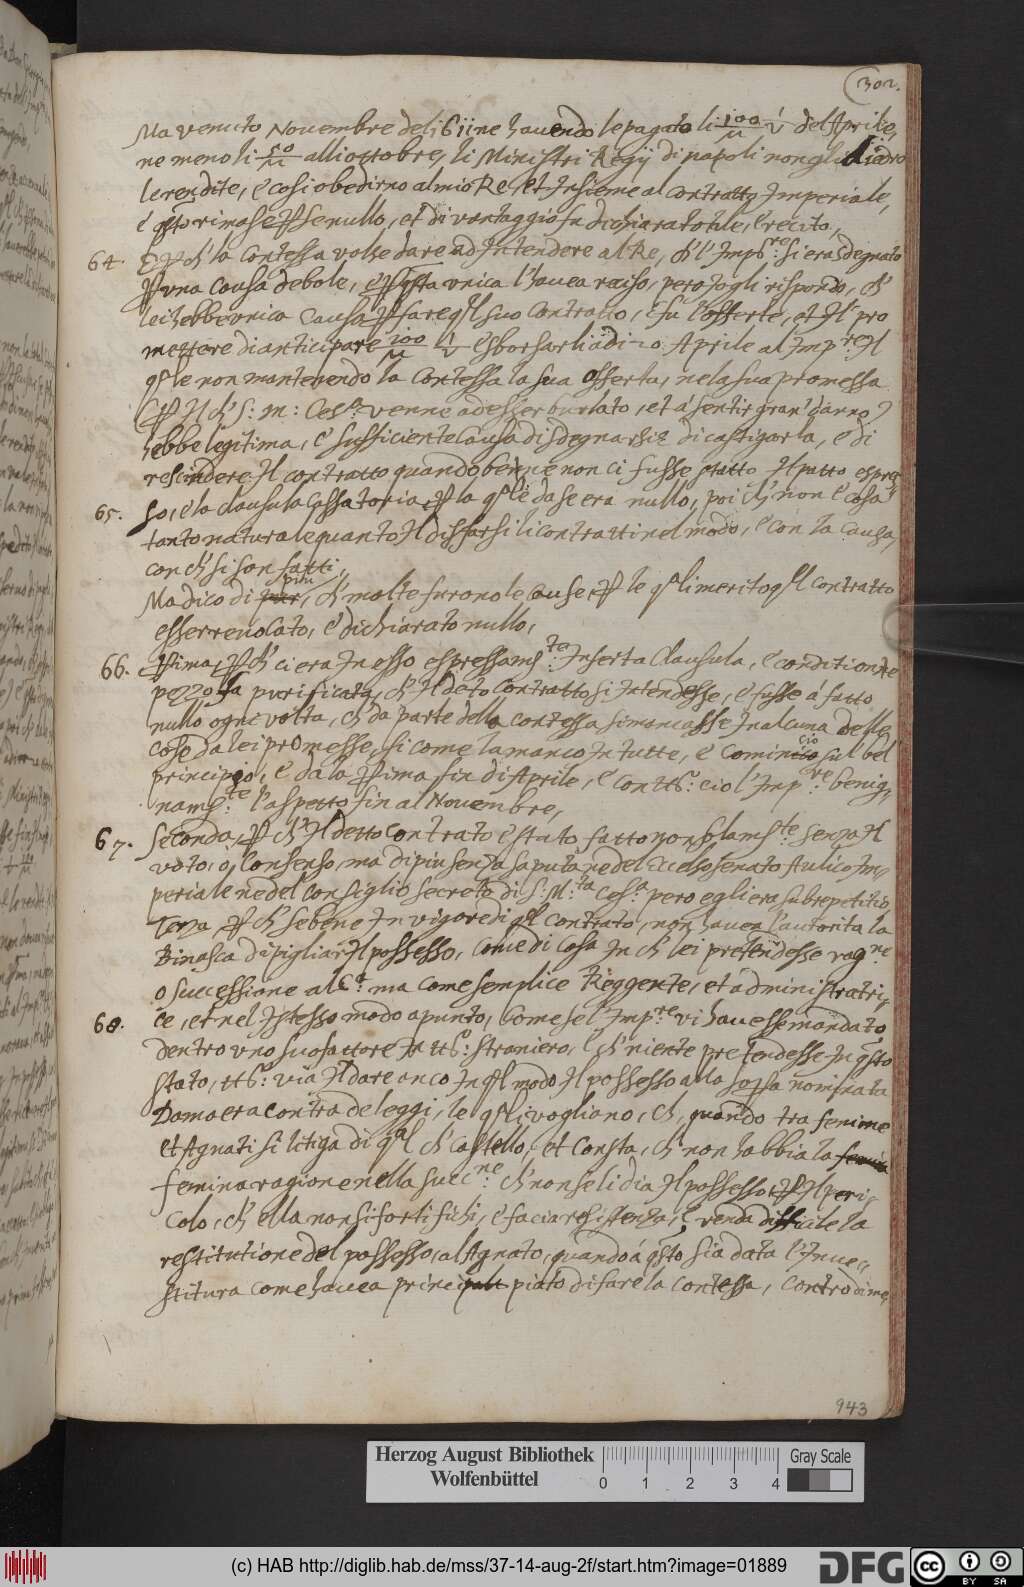 302.
Ma venuto Novembre del 1611 ne havendo le pagato li 100/M ▽ del Aprile,
ne meno li 50/M alli ottobre, li Ministri Regij di napoli non gli diedro
le rendite, e così obedirno al mio Re, et Insieme al Contratto Imperiale,
e restò rimase per se nullo, et di vantaggio fu dichiarato tile, e recito,
64. E perch' la Contessa volse dare ad Intendere al Re, ch' l' Imp.re si era sdegnato
per una Causa debole, e per questa unica l'havea reciso, pero Io gli rispondo, ch'
lei hebbe unica Causa per fare quel suo Contratto, e fu l'offerte, et Il pro
mettere di anticipare 100/M ▽ e sborsarli à di 20 Aprile al Imp.re Il
quale non mantenendo la Contessa la sua offerta, ne la sua promessa
Per Il ch' S: M: Ces.a venne ad esser burlato, et à sentir gran' danno
hebbe legitima, e sufficiente Causa di sdegnarsi e di castigarla, e di
rescindere Il contratto quando bene non ci fusse stato Il patto espres
65. so, e la clausula Cassatoria per la quale da se era nullo, poi ch' non è cosa
tanto naturale quanto Il disfarsi li contratti nel modo, e con la Causa,
con ch' si son fatti,
Ma dico di più, ch' molte furono le Cause, per le quali merito quel Contratto
esser revocato, e dichiarato nullo,
66. Prima, perch' ci era In esso espressam.te Inserta Clausula, e conditione
pezzo fa purificata, ch' Il deto Contratto si Intendesse, e fusse à fatto
nullo ogni volta, ch' da parte della Contessa si mancasse In alcuna delle
cose da lei promesse, si come la manco In tutte, e Comincio sul bel
principio, e da la prima fin di Aprile, e con tt.o cio l' Imp.re benig,
nam.te l'aspetto fin al Novembre,
67. Seconda, perch' Il detto Contrato è stato fatto non solam.te senza Il
voto, o, Consenso, ma di piu senza saputa ne del Eccelso Senato Aulico Im,
periale ne del Consiglio secreto di S. M.ta Ces.a pero egli era subrepetitio
Terza perch' se bene In vigore di quel Contrato, non havea l'autorita la
Binasca di pigliar Il possesso, Come di Cosa In ch' lei pretendesse rag.ne
o successione al C.o ma Come semplice Reggente, et administratri,
68. ce, et nel Istesso modo apunto, Come se l' Imp.re vi havesse mandato
dentro uno suo fattore In tt.o straniero, ch' niente pretendesse In questo
stato, tt.o via Il dare anco In quel modo Il possesso alla sopra nominata
Dama era contra de leggi, le quali vogliano, ch' quando tra femine
et Agnati si litiga di qual ch' Castello, et Consta, ch' non habbia la
femina ragione nella succ.ne ch' non se li dia Il possesso, per Il peri,
colo, ch' ella non si fortifichi, e facia resistenza, e renda difficile la
restitutione del possesso, al Agnato, quando à questo sia data l'Inve,,
stitura come havea principiato di fare la Contessa, Contro di me,
943
Herzog August Bibliothek
Wolfenbüttel
0 1 2 3 4
Gray Scale
(c) HAB http://diglib.hab.de/mss/37-14-aug-2f/start.htm?image=01889
DFG
cc BY SA